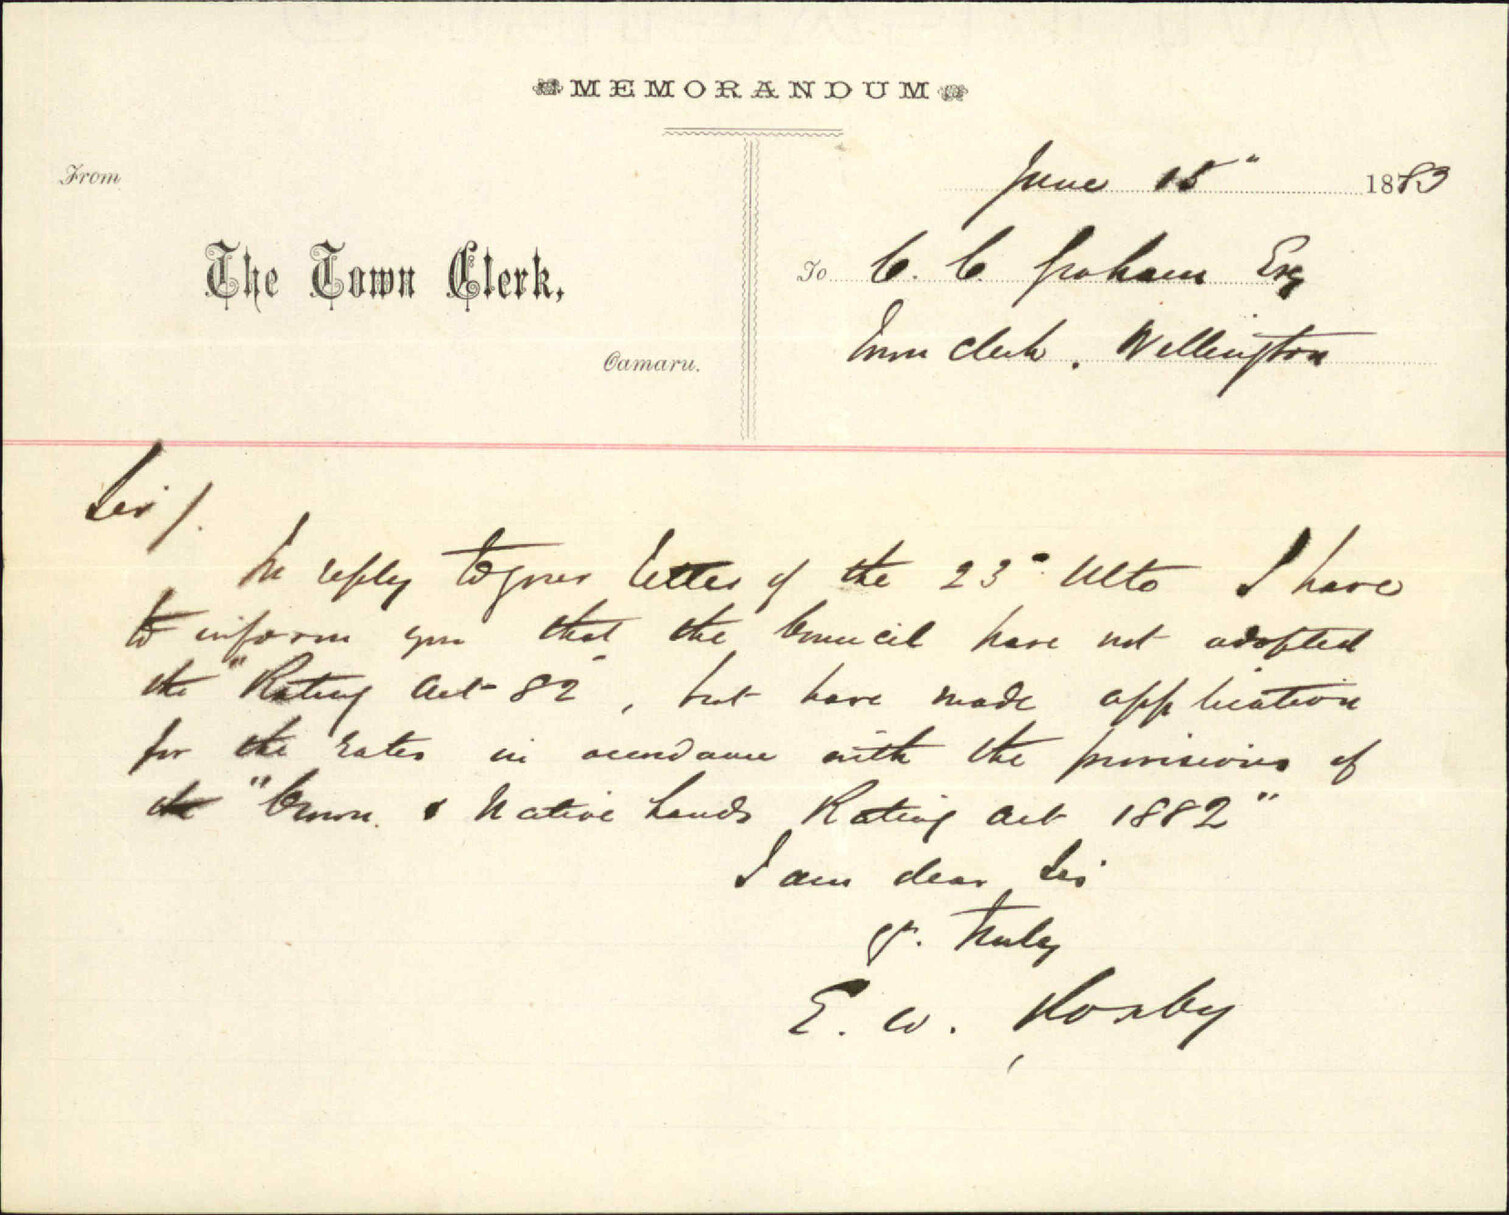 MEMORANDUM
From
June 15" 1883
The Town Clerk,
To C. C. Graham Esq
Oamaru.
Town Clerk. Wellington
Sir/.
In reply to your letter of the 23" Ulto I have
to inform you that the Council have not adopted
the "Rating Act 82", but have made application
for the rates in accordance with the provisions of
the "Crown & Native Lands Rating Act 1882"
I am dear Sir
yr. truly
E. W. Roxby